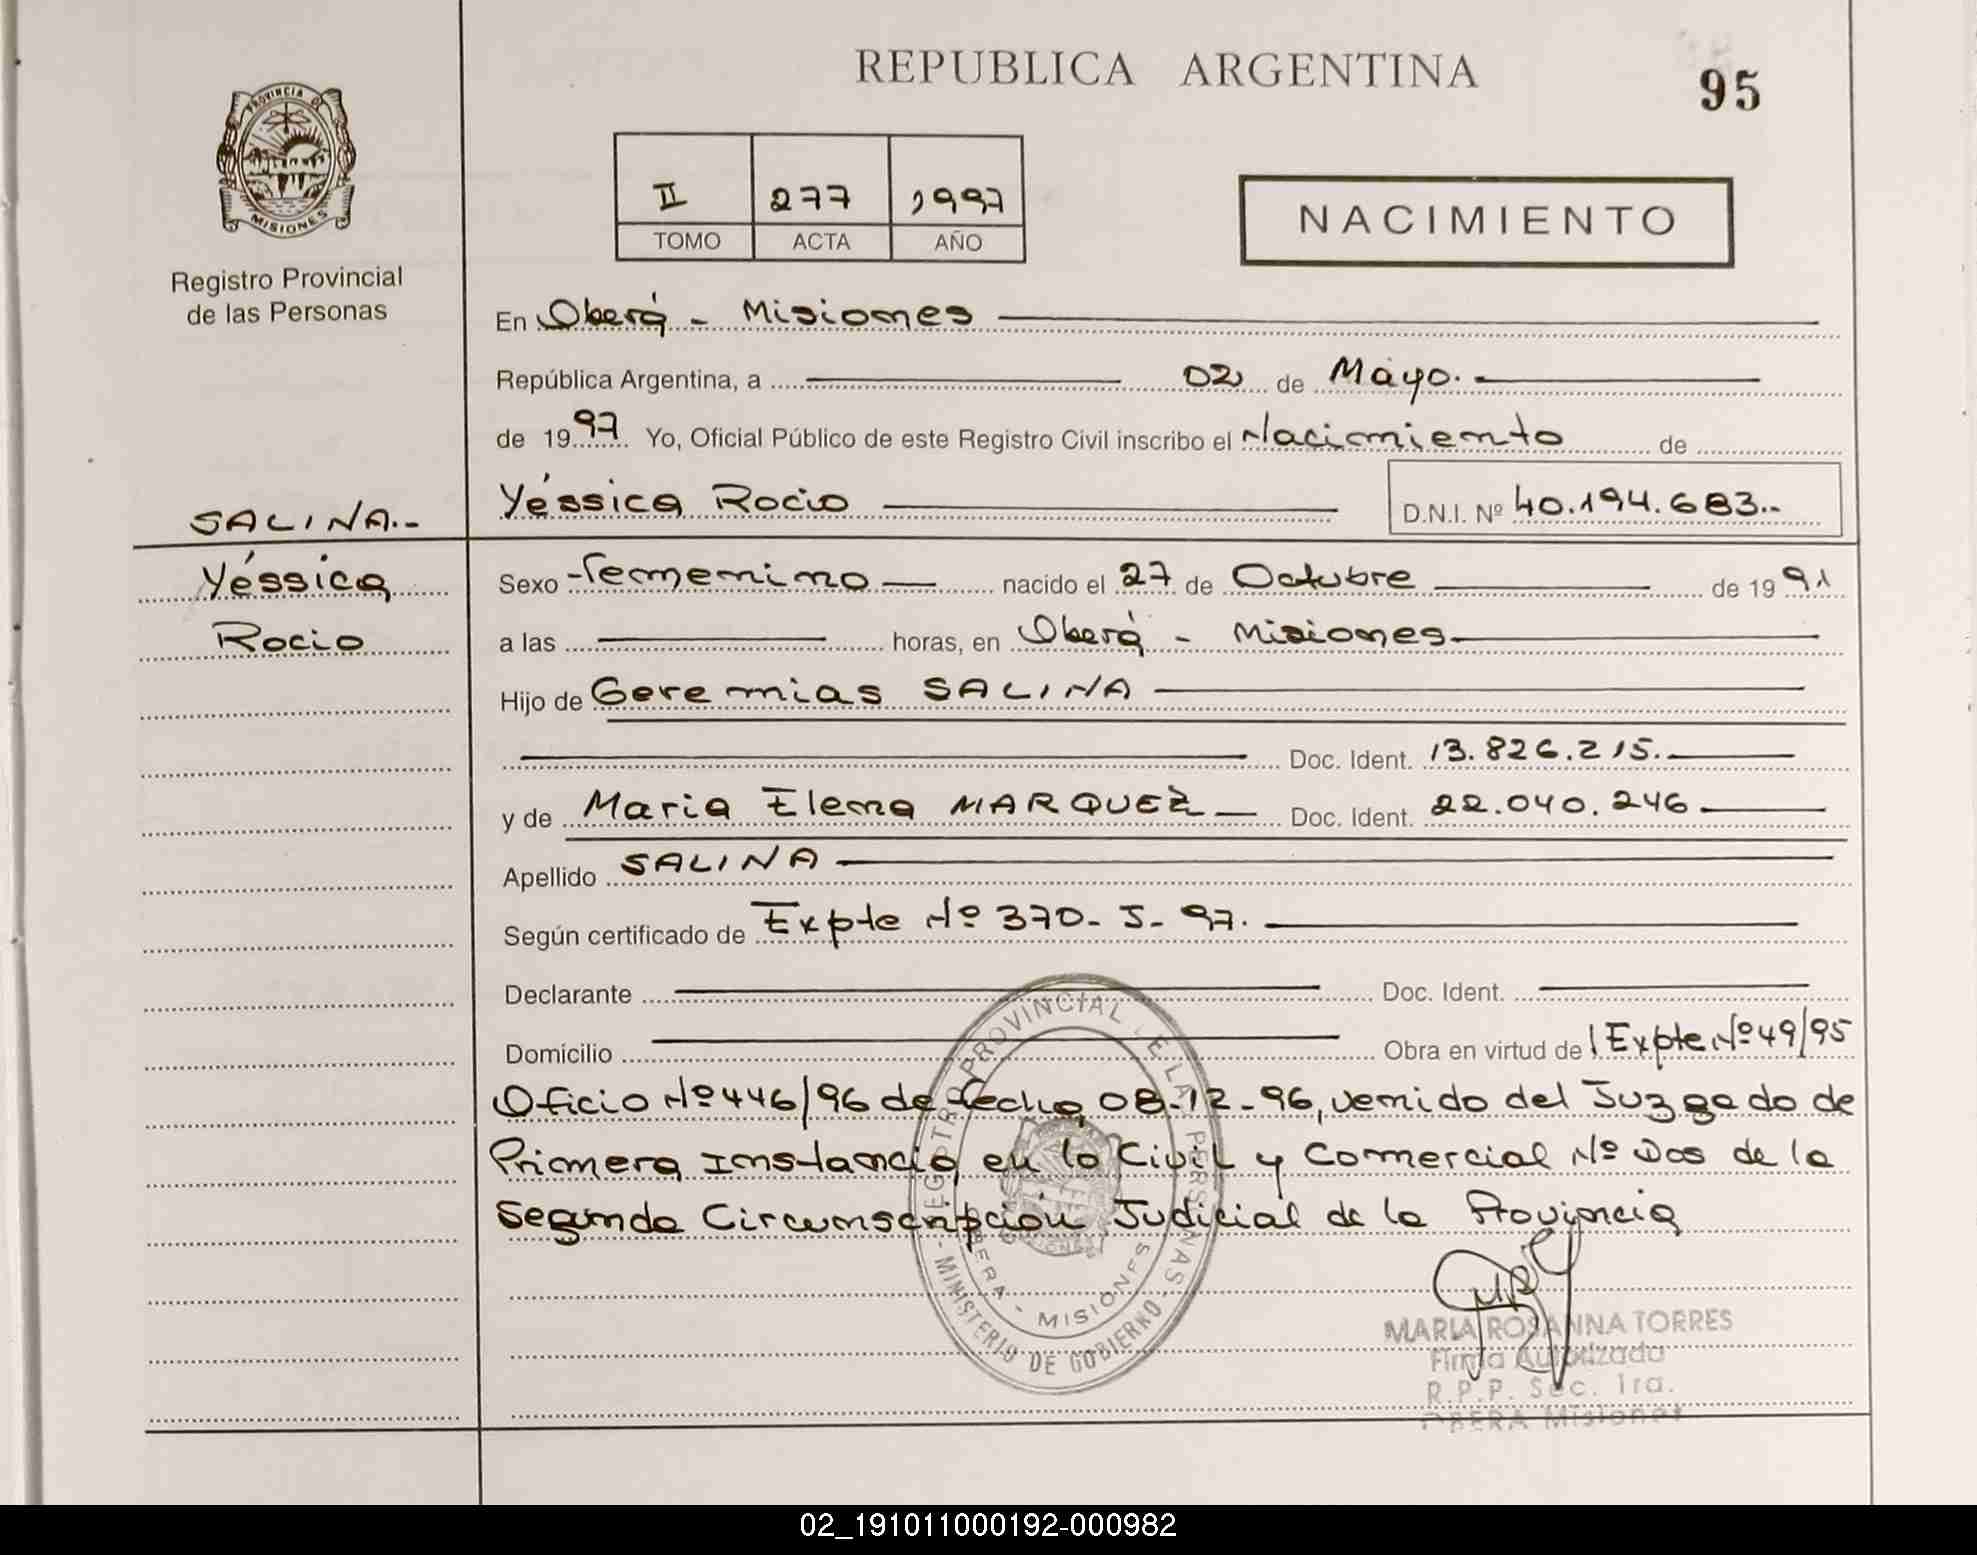 REPUBLICA ARGENTINA
95
PROVINCIA DE
MISIONES
Registro Provincial
de las Personas
II 277 1997
TOMO ACTA AÑO
NACIMIENTO
En Oberá - Misiones
República Argentina, a 02 de Mayo.
de 1997 Yo, Oficial Público de este Registro Civil inscribo el Nacimiento de
SALINA.-
Yéssica Rocio D.N.I. Nº 40.194.683.-
Yéssica
Sexo Femenino nacido el 27 de Octubre de 1991
Rocio
a las horas, en Oberá - Misiones
Hijo de Geremias SALINA
Doc. Ident. 13.826.215.
y de Maria Elena MARQUEZ Doc. Ident. 22.040.246
Apellido SALINA
Según certificado de Expte Nº 370- S- 97.
Declarante Doc. Ident.
Domicilio Obra en virtud de Expte Nº 49/95
Oficio Nº 446/96 de fecha 08-12-96, venido del Juzgado de
Primera Instancia en lo Civil y Comercial Nº Dos de la
Segunda Circunscripción Judicial de la Provincia
REGISTRO PROVINCIAL DE LAS PERSONAS
OBERA - MISIONES
- MINISTERIO DE GOBIERNO -
MARIA ROSANNA TORRES
Firma Autorizada
R.P.P. Sec. 1ra.
OBERA Misiones
02_191011000192-000982